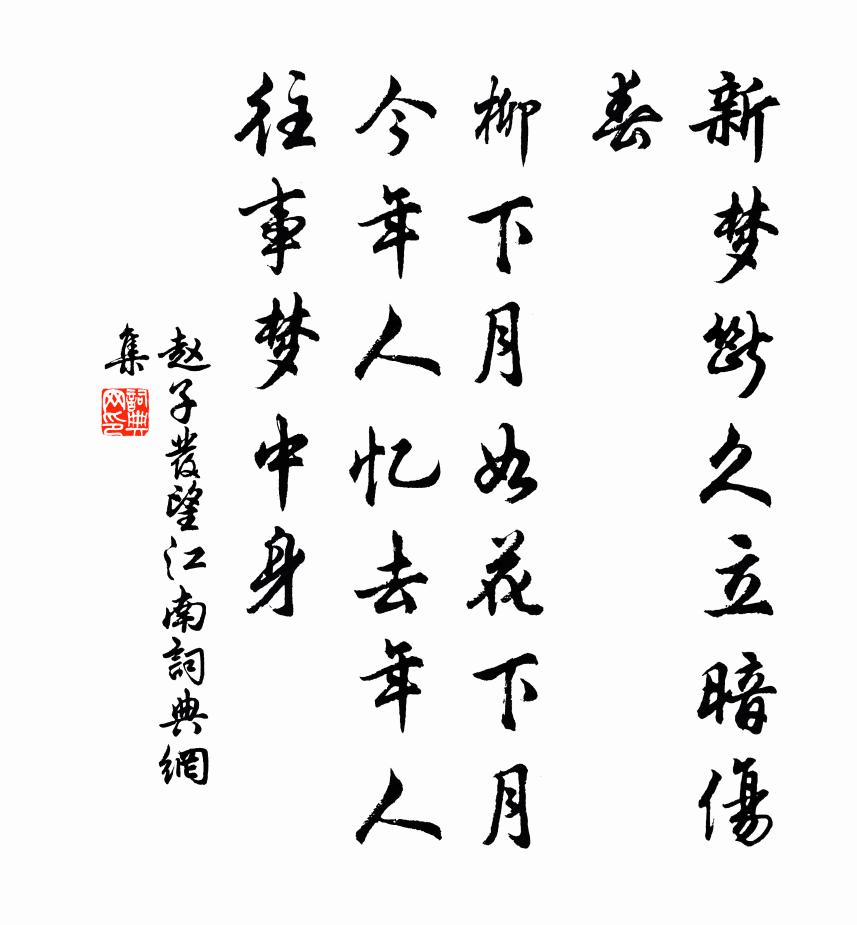 新梦断久立暗傷
春
柳下月如花下月
今年人忆去年人
往事梦中身
赵子發望江南詞典網
集
詞典网印